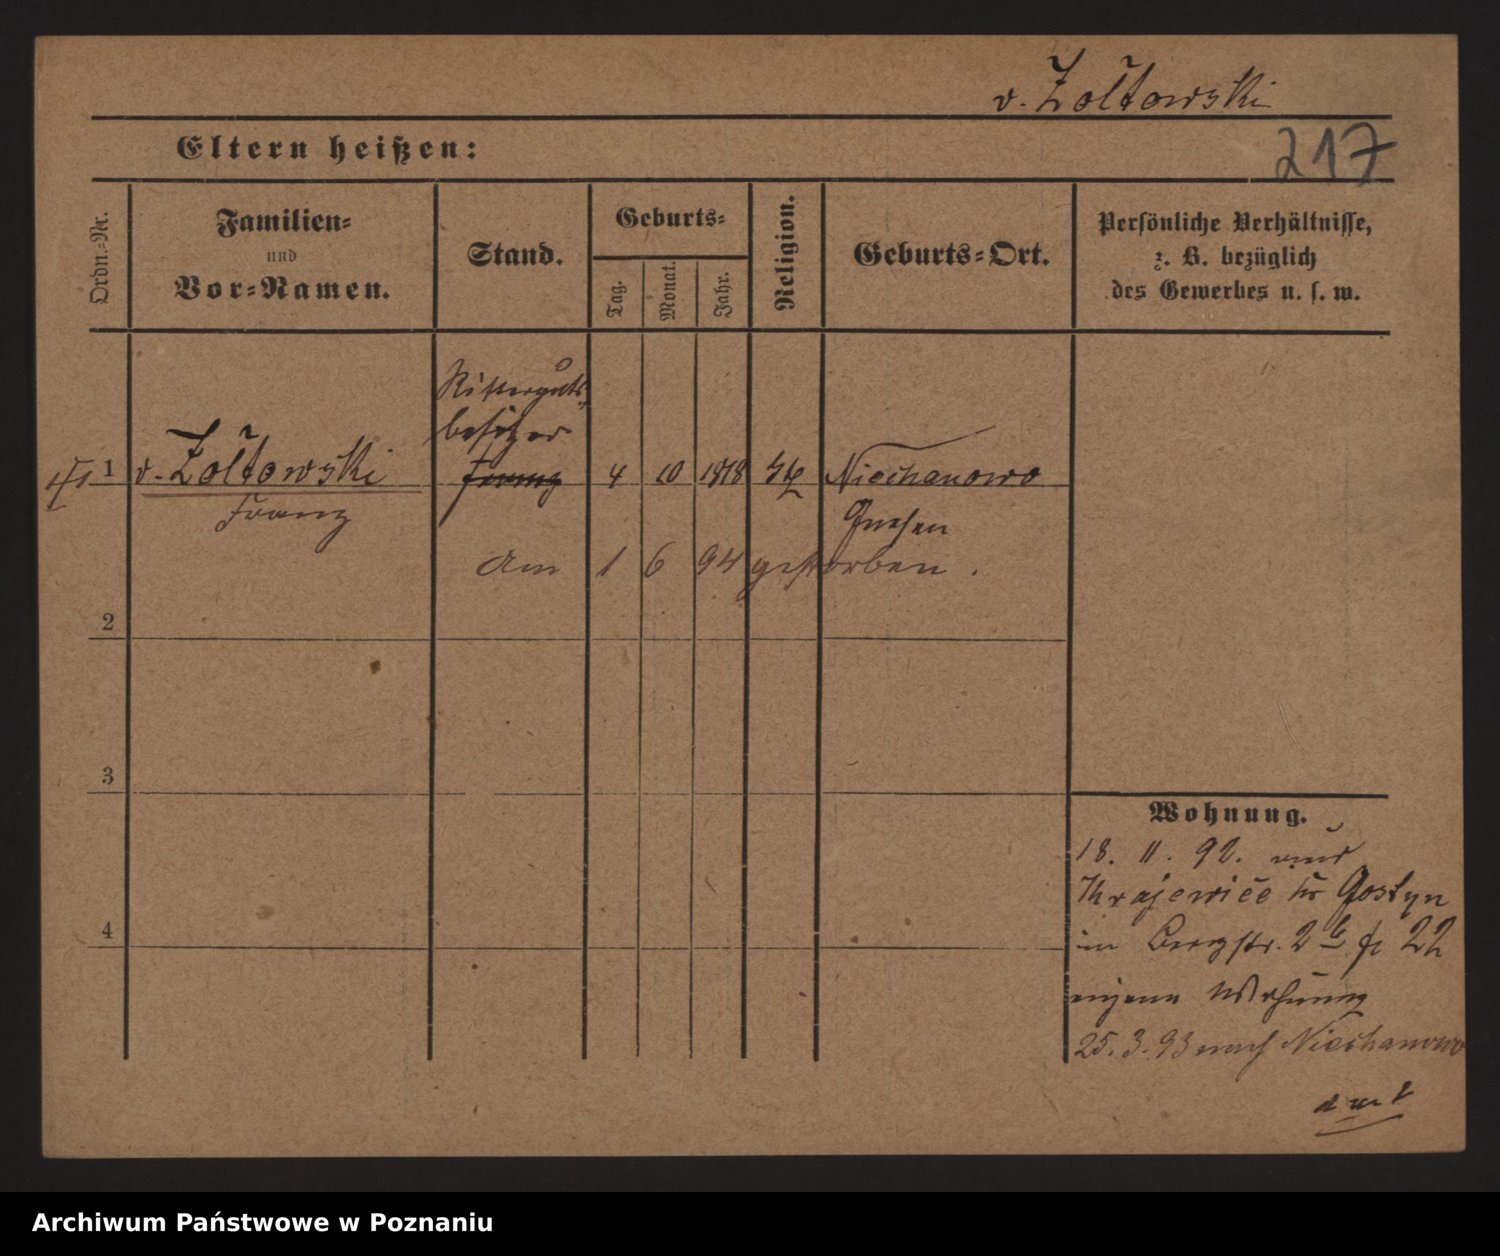 v. Zoltowski
217
Eltern heißen:
Ordn.-Nr.
Familien-
und
Vor-Namen.
Stand.
Geburts-
Tag.
Monat.
Jahr.
Religion.
Geburts-Ort.
Persönliche Verhältnisse,
z. B. bezüglich
des Gewerbes u. s. w.
Ritterguts-
besitzer
1 v. Zoltowski Franz 4 10 1818 Niechanowo
Franz
Gnesen
am 1 6 94 gestorben.
2
3
4
Wohnung.
18. 11. 92.
Krajewice Gostyn
im Bergstr. 2 b 22
eigene Wohnung
25. 3. 93 nach Niechanowo